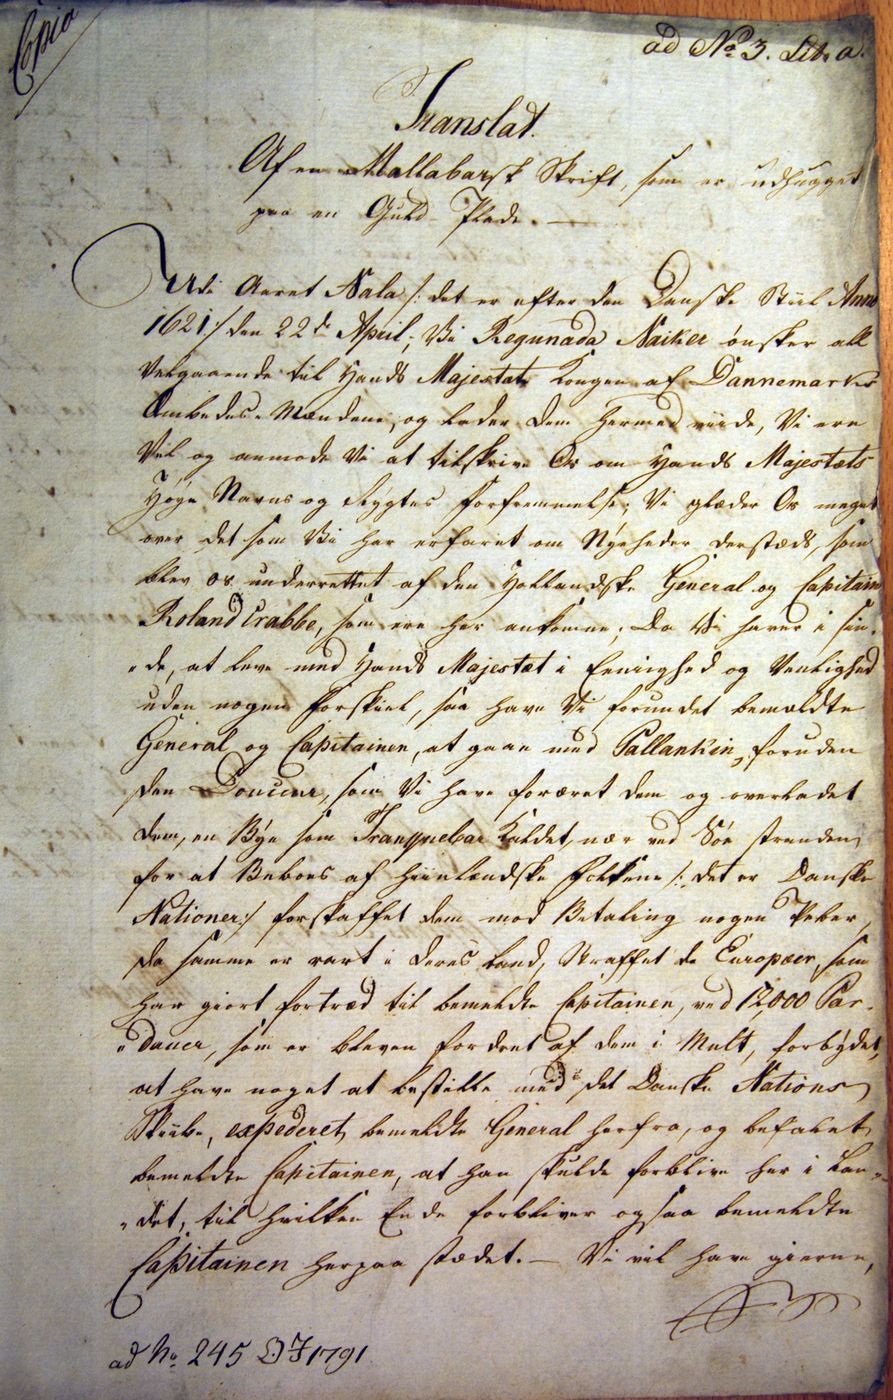 Copia
ad No. 3. Litr. a.
Translat.
Af en Mallabarsk Skrift, som er udhugget
paa en Guld-Plade. —
Udi Aaret Nala /: det er efter den Danske Stiil Anno
1621 :/ den 22de April; Vi Regunada Naiker ønsker all
Velgaaende til Hands Majestæt Kongen af Dannemarkes
Embedes-Mændene, og lader dem hermed viide, Vi ere
Vel og anmode Vi at tilskrive Os om Hands Majestæts
Høye Navns og Rygtes forfremmelse; Vi glæder Os meget
over det som Vi har erfaret om Nyeheder dersteds, som
blev os underrettet af den Hollandske General og Capitain
Roland Crabbe, som ere her ankomne; Da Vi haver i sin-
"de, at leve med Hands Majestæt i Eenighed og Venlighed
uden nogen forskiel, saa have Vi forundet bemeldte
General og Capitainen, at gaae med Pallankin, foruden
den Douceur, som Vi have foræret dem og overladet
dem, en Bye som Trangebar Kaldet, nær ved Søe stranden,
for at beboes af hiinlændske folkene /: det er Danske
Nationer :/ forskaffet dem mod Betaling nogen Peber,
da samme er rart i deres Land, Straffet de Europæer, som
har giort fortræd til bemeldte Capitainen, ved 12,000 Par-
"dauer, som er bleven fordret af dem i Mult, forbydet,
at have noget at bestille med det Danske Nations
Skiibe, expederet bemeldte General herfra, og befalet
bemeldte Capitainen, at han skulde forblive her i Lan-
"det, til hvilken Ende forbliver ogsaa bemeldte
Capitainen herpaa stædet. — Vi vil have gierne,
ad No. 245 1791